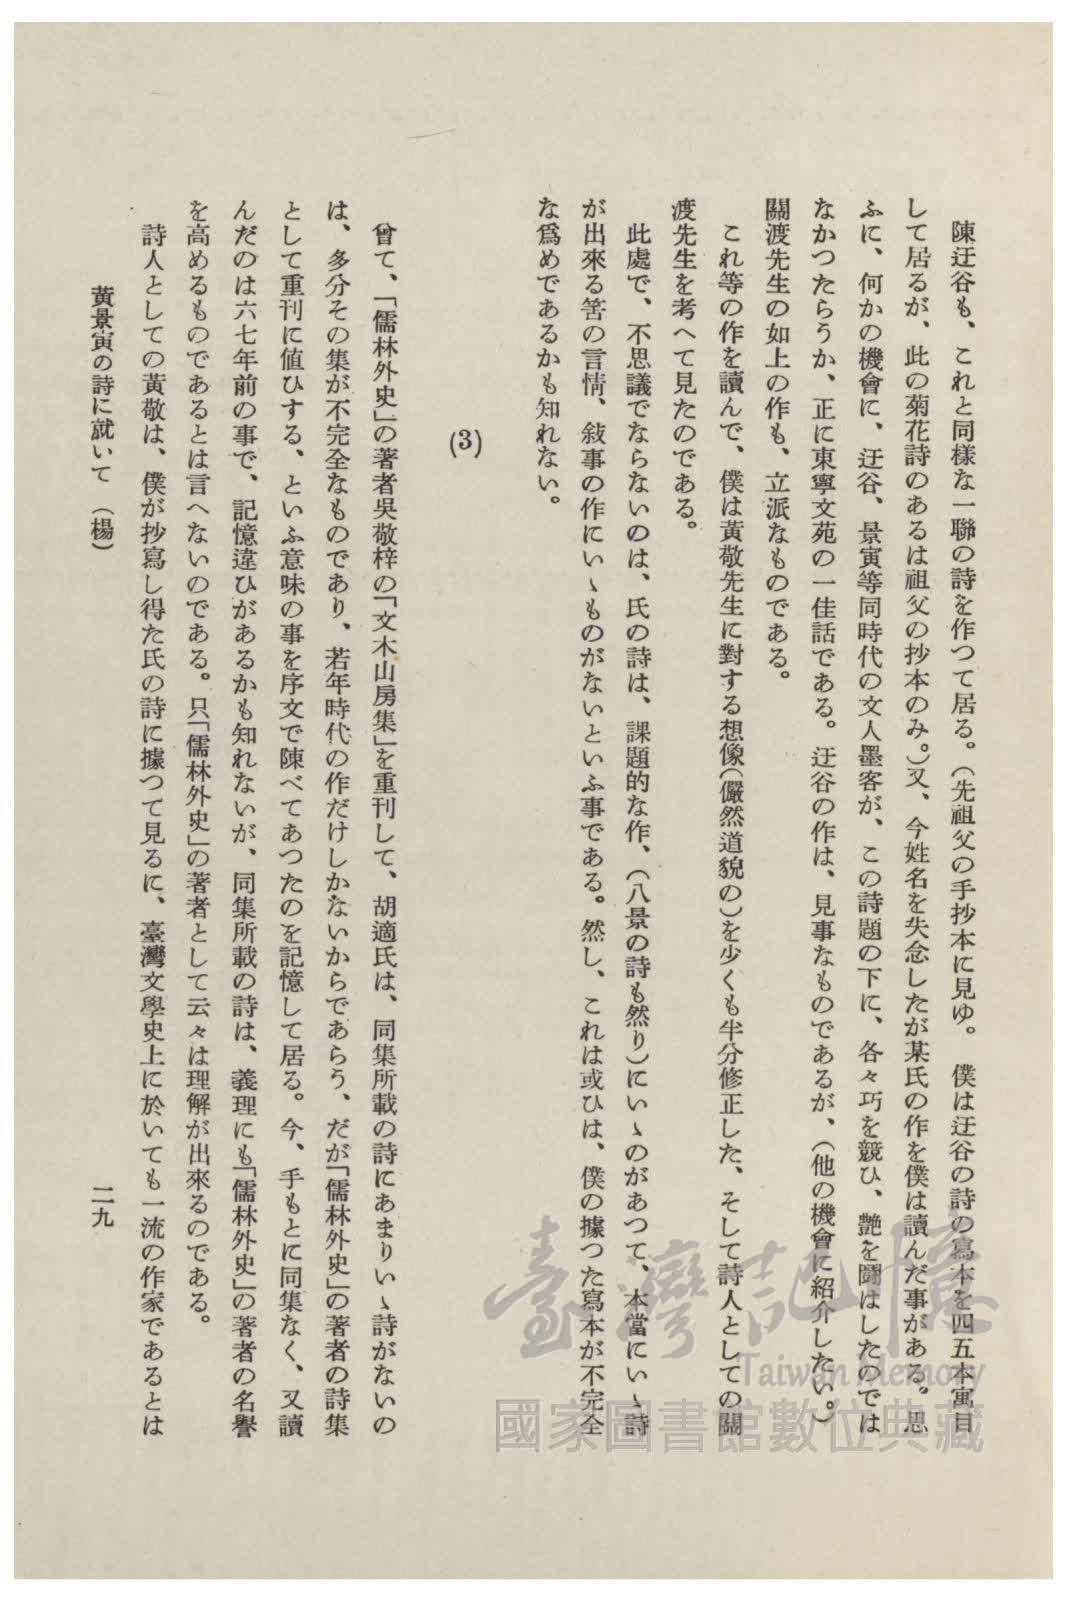 陳迂谷も、これと同樣な一聯の詩を作つて居る。（先祖父の手抄本に見ゆ。　僕は迂谷の詩の寫本を四五本寓目
して居るが、此の菊花詩のあるは祖父の抄本のみ。）又、今姓名を失念したが某氏の作を僕は讀んだ事がある。思
ふに、何かの機會に、迂谷、景寅等同時代の文人墨客が、この詩題の下に、各々巧を競ひ、艶を鬪はしたのでは
なかつたらうか、正に東寧文苑の一佳話である。迂谷の作は、見事なものであるが、（他の機會に紹介したい。）
關渡先生の如上の作も、立派なものである。
これ等の作を讀んで、僕は黃敬先生に對する想像（儼然道貌の）を少くも半分修正した、そして詩人としての關
渡先生を考へて見たのである。
此處で、不思議でならないのは、氏の詩は、課題的な作、（八景の詩も然り）にいゝのがあつて、本當にいゝ詩
が出來る筈の言情、敍事の作にいゝものがないといふ事である。然し、これは或ひは、僕の據つた寫本が不完全
な爲めであるかも知れない。
(3)
曾て、「儒林外史」の著者吳敬梓の「文木山房集」を重刊して、胡適氏は、同集所載の詩にあまりいゝ詩がないの
は、多分その集が不完全なものであり、若年時代の作だけしかないからであらう、だが「儒林外史」の著者の詩集
として重刊に値ひする、といふ意味の事を序文で陳べてあつたのを記憶して居る。今、手もとに同集なく、又讀
んだのは六七年前の事で、記憶違ひがあるかも知れないが、同集所載の詩は、義理にも「儒林外史」の著者の名譽
を高めるものであるとは言へないのである。只「儒林外史」の著者として云々は理解が出來るのである。
詩人としての黃敬は、僕が抄寫し得た氏の詩に據つて見るに、臺灣文學史上に於いても一流の作家であるとは
黃景寅の詩に就いて（楊）
二九
臺灣記憶
Taiwan Memory
國家圖書館數位典藏